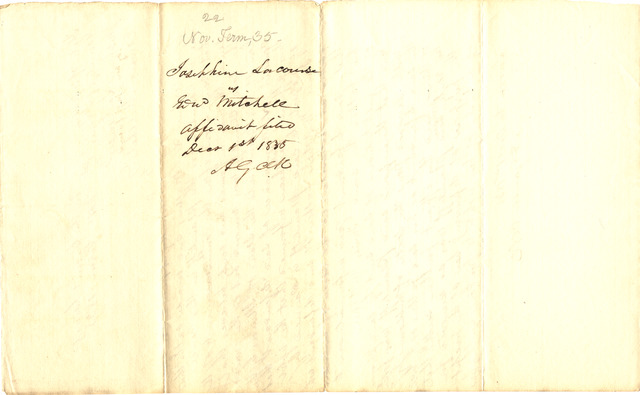 22
Nov. Term, 35-
Josephine Lacourse
vs
Edwd Mitchell
affidavit filed
Decr 1st 1835